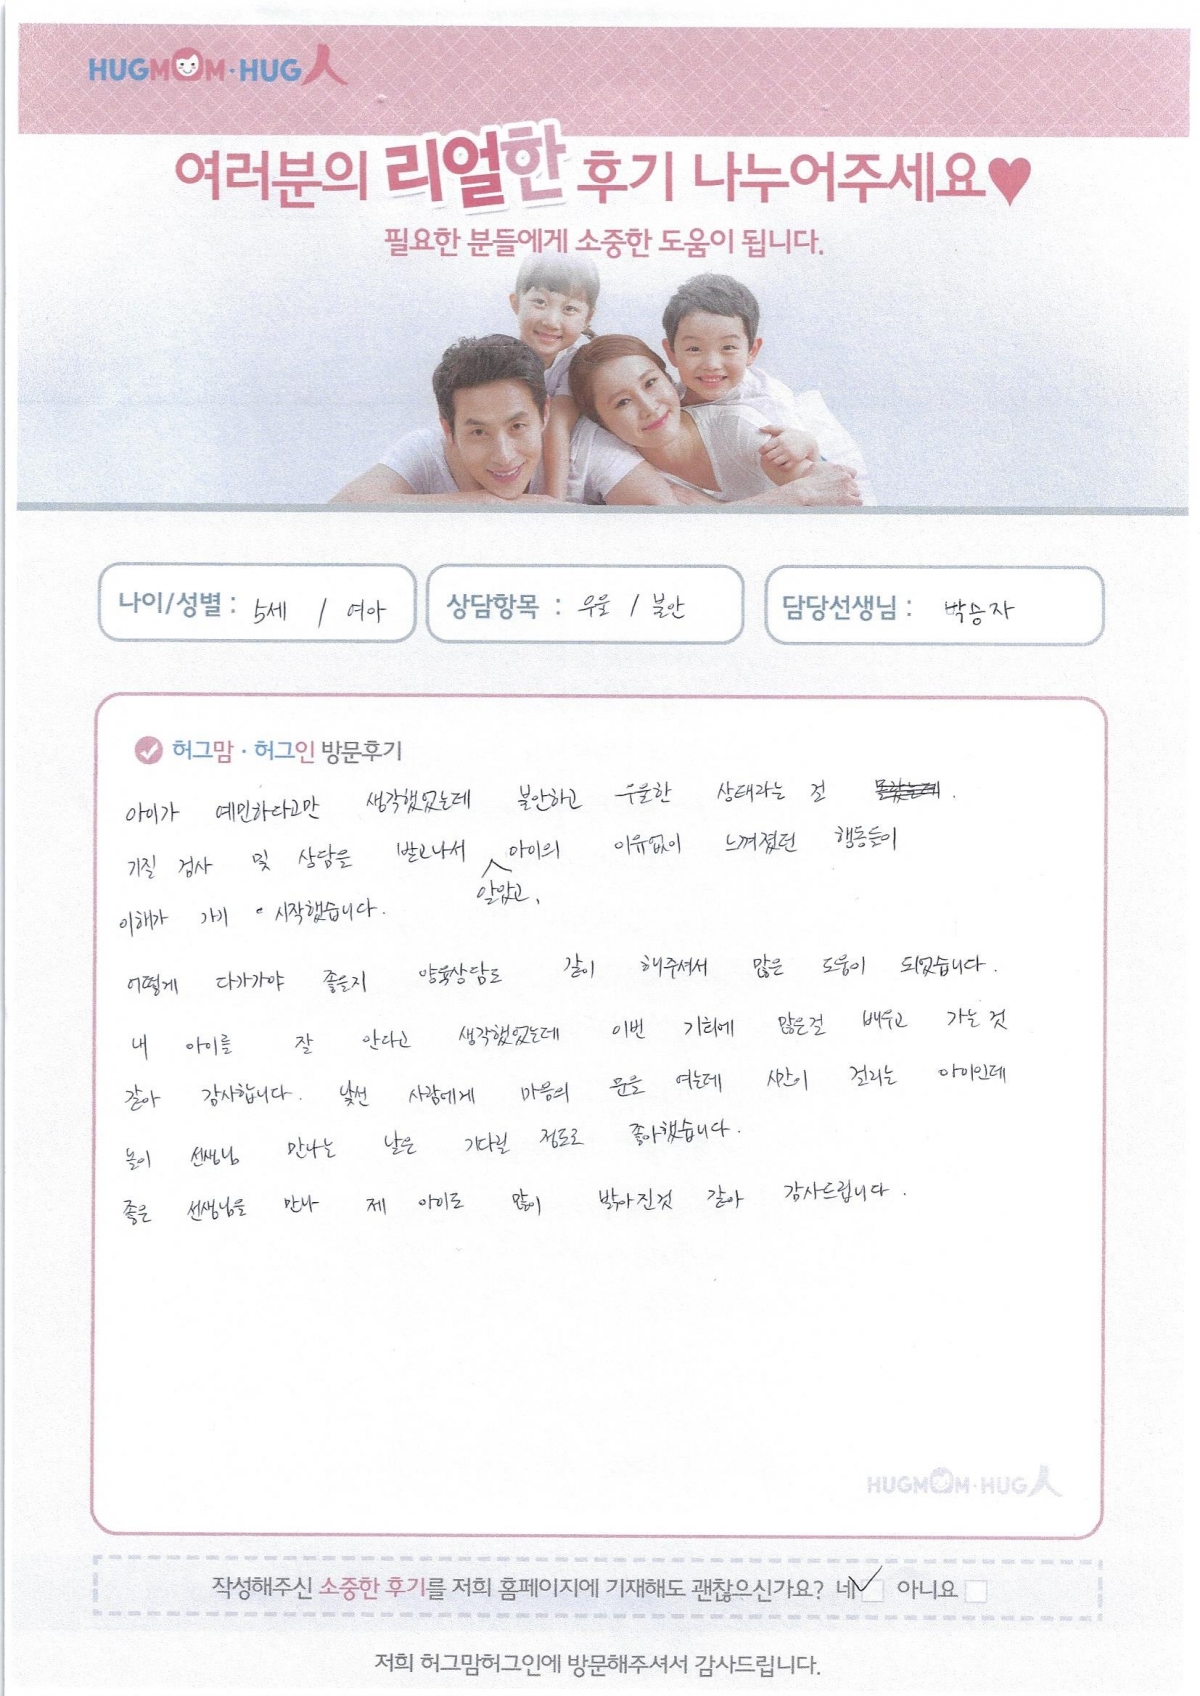 HUGMOM·HUG人
여러분의 리얼한 후기 나누어주세요♥
필요한 분들에게 소중한 도움이 됩니다.
나이/성별 : 5세 / 여아
상담항목 : 우울 / 불안
담당선생님 : 박승자
허그맘·허그인 방문후기
아이가 예민하다고만 생각했었는데 불안하고 우울한 상태라는 걸 몰랐는데.
기질 검사 및 상담을 받고나서 아이의 이유없이 느껴졌던 행동들이
알았고,
이해가 가기 시작했습니다.
어떻게 다가가야 좋을지 양육상담도 같이 해주셔서 많은 도움이 되었습니다.
내 아이를 잘 안다고 생각했었는데 이번 기회에 많은걸 배우고 가는 것
같아 감사합니다. 낯선 사람에게 마음의 문을 여는데 시간이 걸리는 아이인데
놀이 선생님 만나는 날은 기다릴 정도로 좋아했습니다.
좋은 선생님을 만나 제 아이도 많이 밝아진것 같아 감사드립니다.
HUGMOM·HUG人
작성해주신 소중한 후기를 저희 홈페이지에 기재해도 괜찮으신가요? 네 아니요
저희 허그맘허그인에 방문해주셔서 감사드립니다.